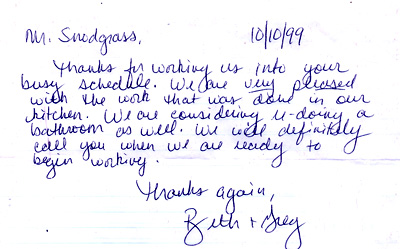 Mr. Snodgrass, 10/10/99
Thanks for working us into your
busy schedule. We are very pleased
with the work that was done in our
kitchen. We are considering re-doing a
bathroom as well. We will definitely
call you when we are ready to
begin working.
Thanks again,
Beth + Greg